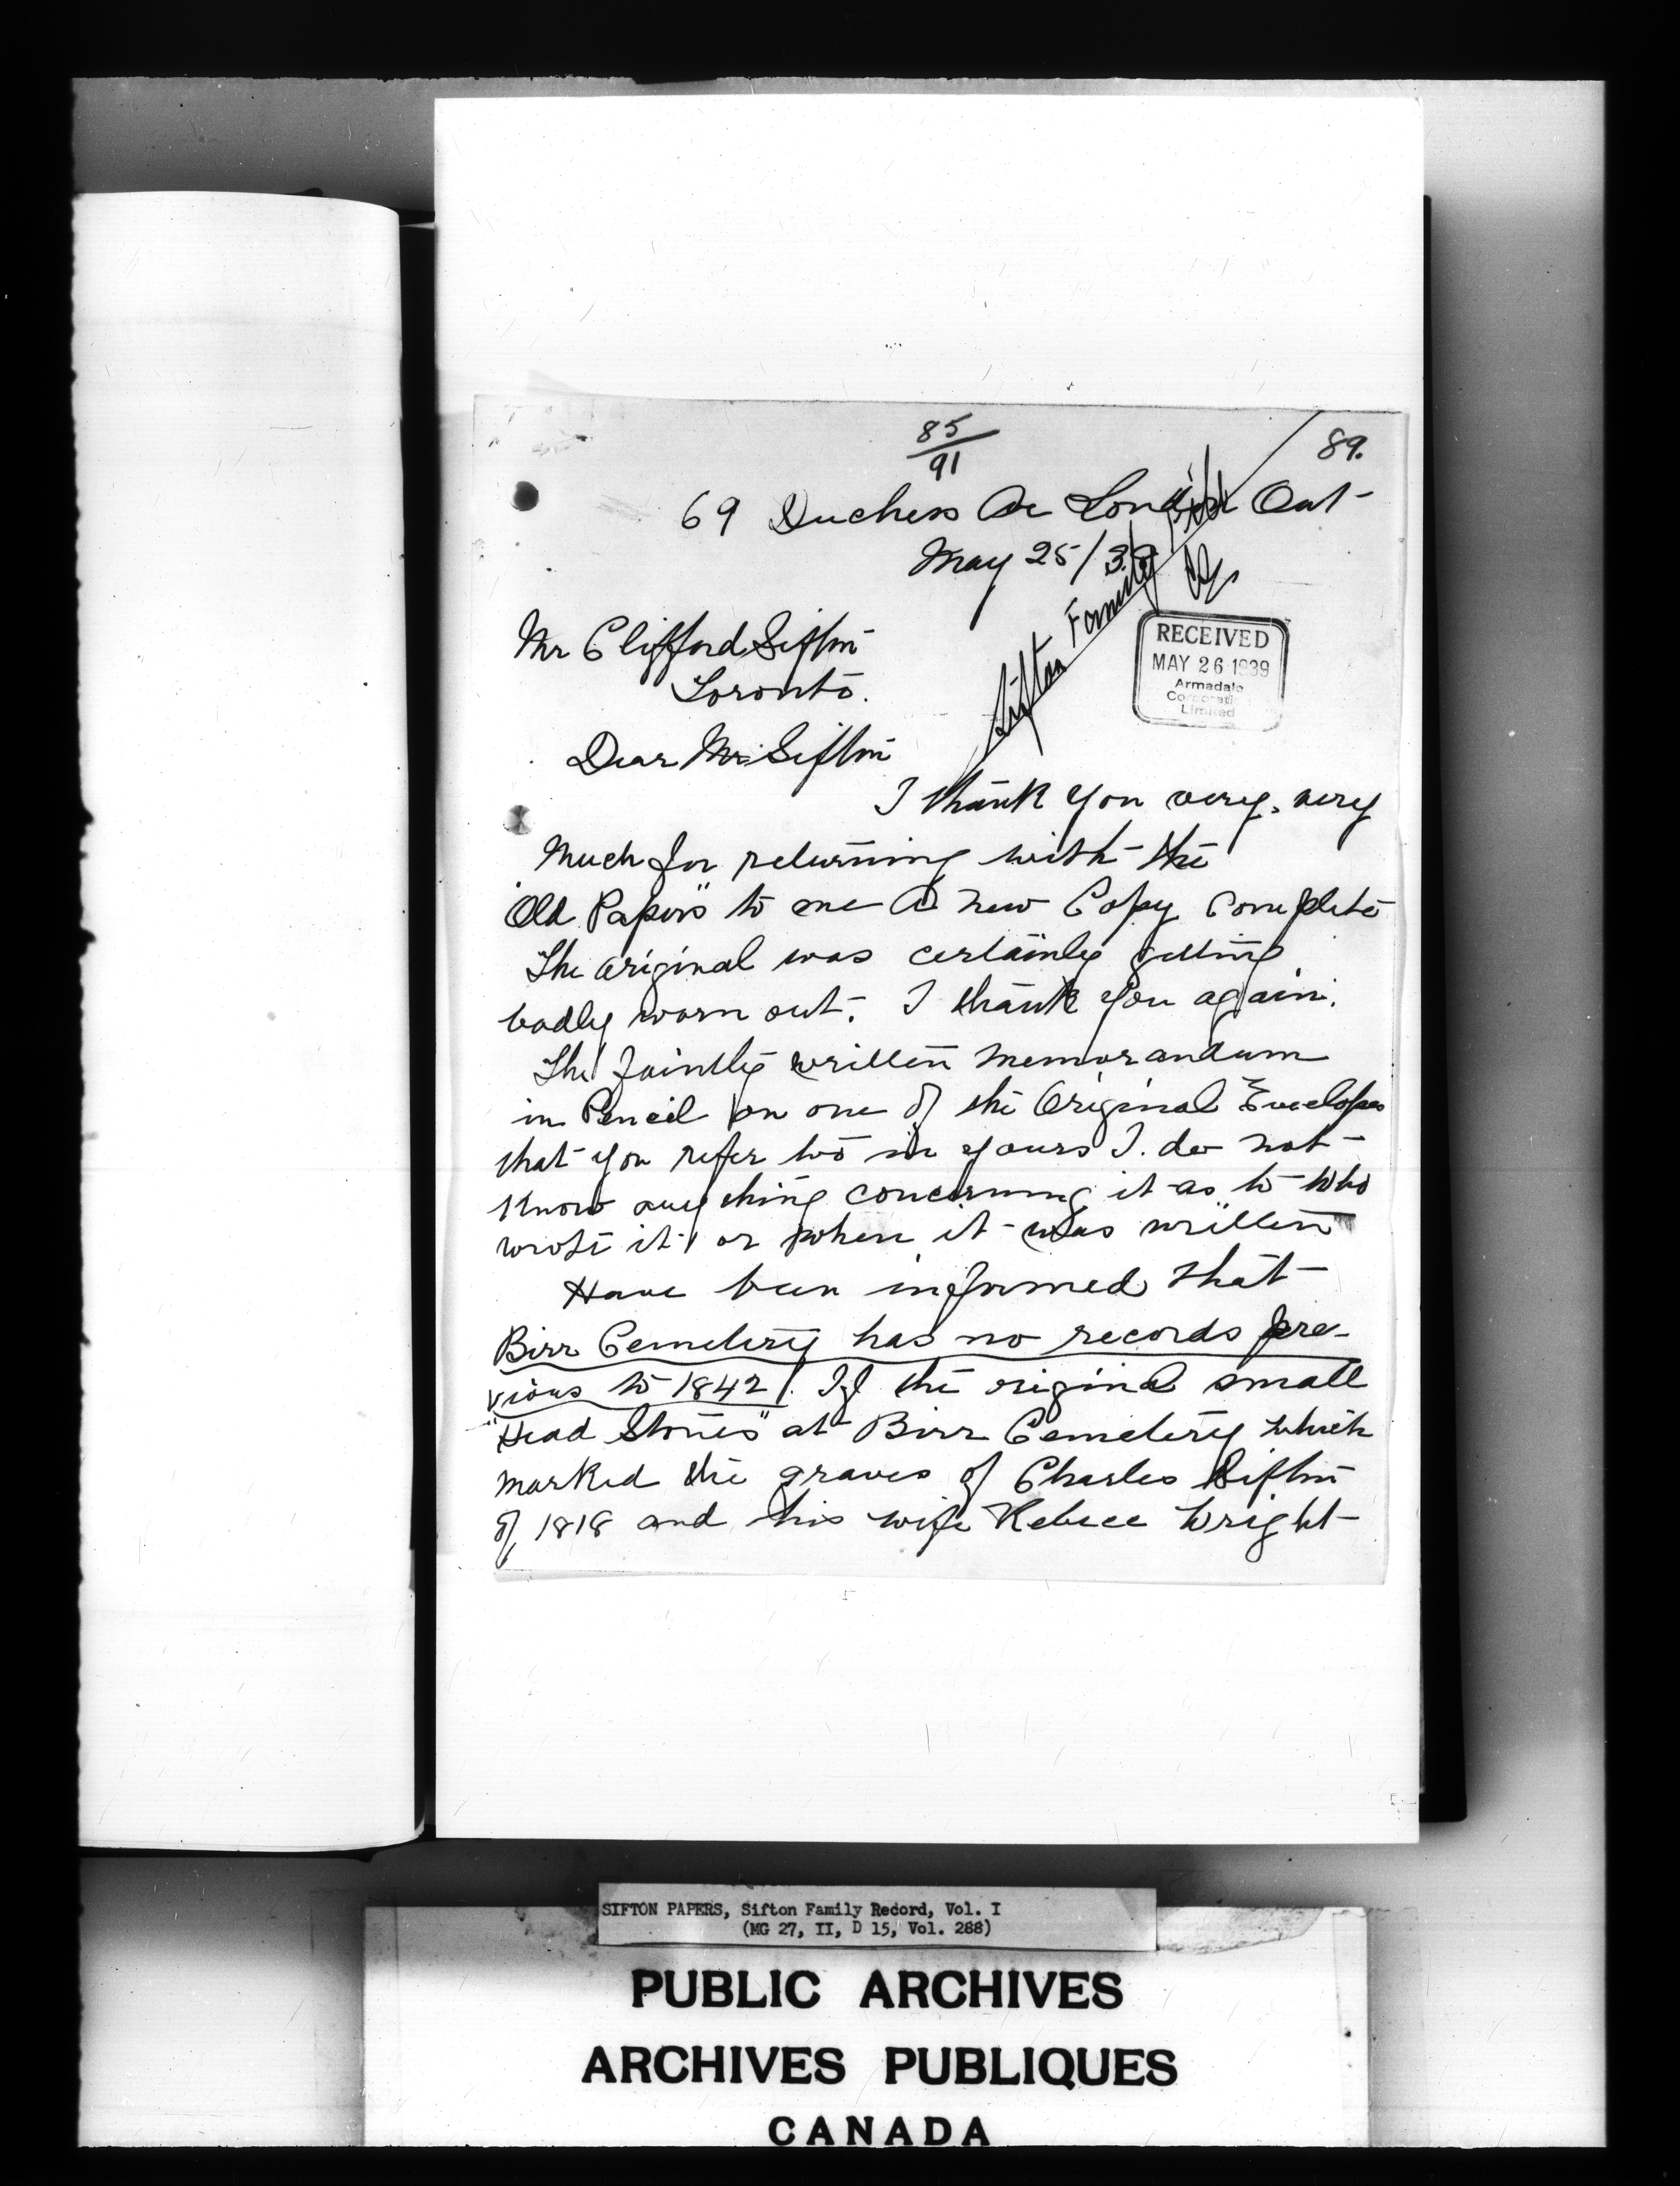 85
91
89.
69 Duchess Av London Ont-
May 25/39
Sifton Family
RECEIVED
MAY 26 1939
Armadale
Corporation
Limited
Mr Clifford Sifton
Toronto.
Dear Mr Sifton
I thank you very, very
much for returning with the
"Old Papers" to me a new Copy Complete
The original was certainly getting
badly worn out. I thank you again.
The faintly written memorandum
in Pencil on one of the Original Envelopes
that you refer to in yours I do not
know anything concerning it as to who
wrote it or when it was written
Have been informed that
Birr Cemetery has no records pre-
vious to 1842. If the original small
"Head Stones" at Birr Cemetery which
marked the graves of Charles Sifton
of 1818 and his wife Rebecc Wright
SIFTON PAPERS, Sifton Family Record, Vol. I
(MG 27, II, D 15, Vol. 288)
PUBLIC ARCHIVES
ARCHIVES PUBLIQUES
CANADA